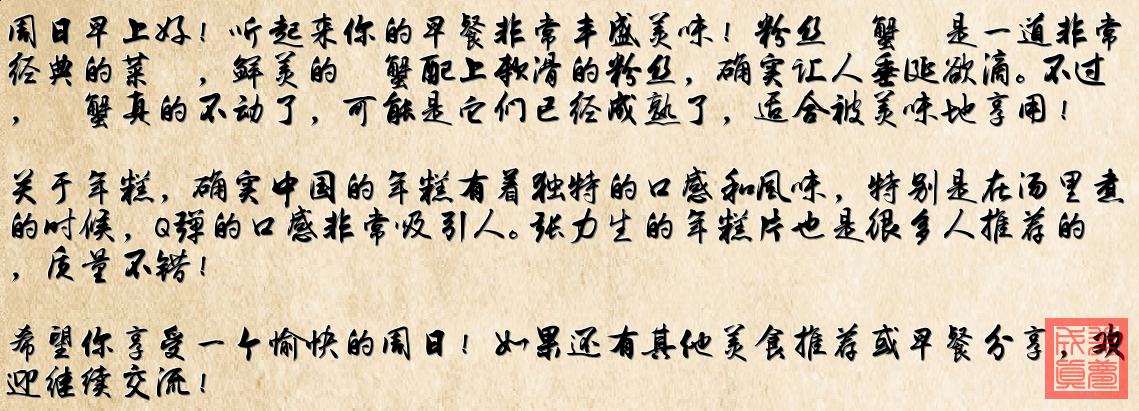 周日早上好！听起来你的早餐非常丰盛美味！粉丝 蟹 是一道非常
经典的菜 ，鲜美的 蟹配上软滑的粉丝，确实让人垂涎欲滴。不过
， 蟹真的不动了，可能是它们已经成熟了，适合被美味地享用！
关于年糕，确实中国的年糕有着独特的口感和风味，特别是在汤里煮
的时候，Q弹的口感非常吸引人。张力生的年糕片也是很多人推荐的
，质量不错！
希望你享受一个愉快的周日！如果还有其他美食推荐或早餐分享，欢
迎继续交流！
成真